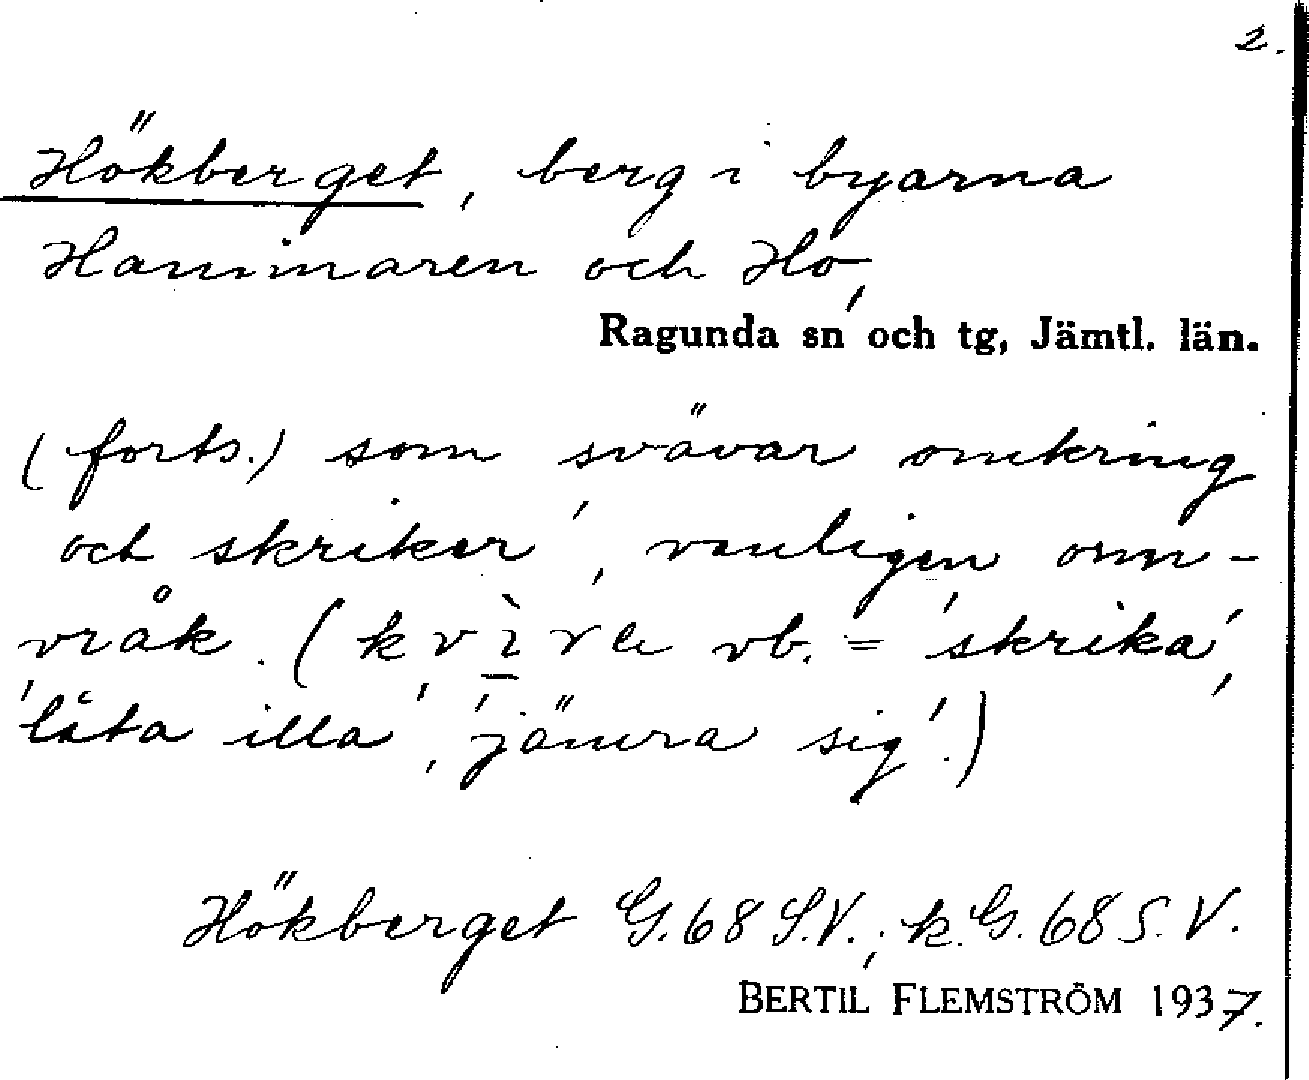 2.
Hökberget, berg i byarna
Hammaren och Ho,
Ragunda sn och tg, Jämtl. län.
(forts.) som svävar omkring
och skriker', vanligen orm-
vråk. (kvìvla vb. = 'skrika',
'låta illa', 'jämra sig'.)
Hökberget G.68 S.V.; k.G. 68 S.V.
BERTIL FLEMSTRÖM 1937.